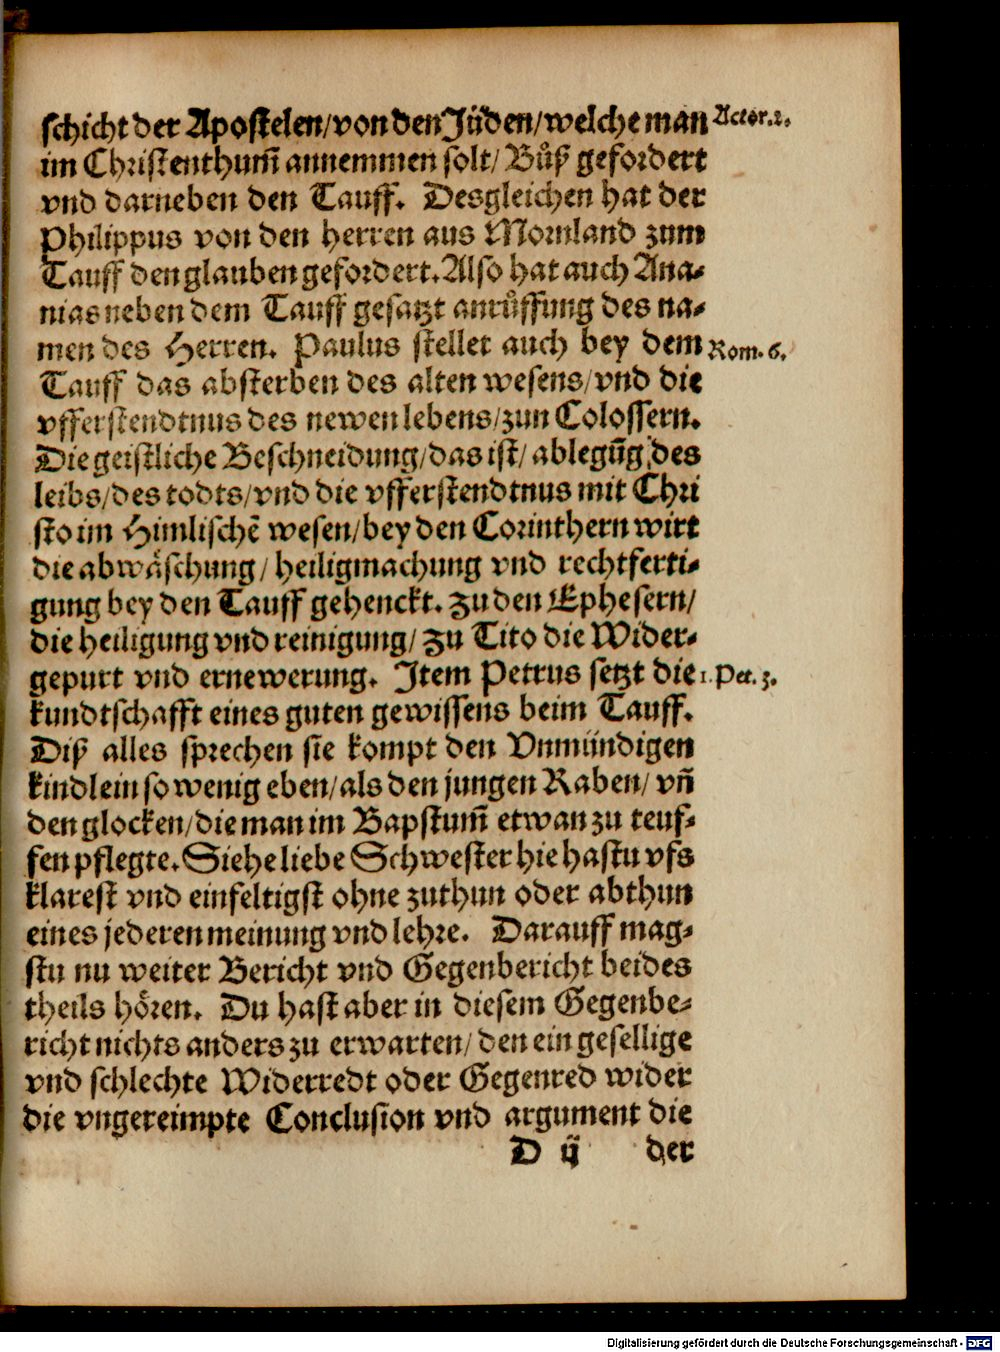 schicht der Apostelen/von den Jüden/welche man Actor.2.
im Christenthum̃ annemmen solt/ Bůß gefordert
vnd darneben den Tauff. Desgleichen hat der
Philippus von den herren aus Mornland zum
Tauff den glauben gefordert. Also hat auch Ana-
nias neben dem Tauff gesatzt anrůffung des na-
men des Herren. Paulus stellet auch bey dem Rom. 6.
Tauff das absterben des alten wesens/vnd die
vfferstendtnus des newen lebens/zun Colossern.
Die geistliche Beschneidung/das ist/ ablegũg des
leibs/des todts/vnd die vfferstendtnus mit Chri
sto im Himlischẽ wesen/bey den Corinthern wirt
die abwäschung/ heiligmachung vnd rechtferti-
gung bey den Tauff gehenckt. Zu den Ephesern/
die heiligung vnd reinigung/ Zu Tito die Wider-
gepurt vnd ernewerung. Item Petrus setzt die 1. Pet. 3.
kundtschafft eines guten gewissens beim Tauff.
Diß alles sprechen sie kompt den Vnmündigen
kindlein so wenig eben/als den jungen Raben/ vñ
den glocken/die man im Bapstum̃ etwan zu teuf-
fen pflegte. Siehe liebe Schwester hie hastu vfs
klarest vnd einfeltigst ohne zuthun oder abthun
eines jederen meinung vnd lehre. Darauff mag-
stu nu weiter Bericht vnd Gegenbericht beides
theils hören. Du hast aber in diesem Gegenbe-
richt nichts anders zu erwarten/ den ein gesellige
vnd schlechte Widerredt oder Gegenred wider
die vngereimpte Conclusion vnd argument die
D ij der
Digitalisierung gefördert durch die Deutsche Forschungsgemeinschaft - DFG